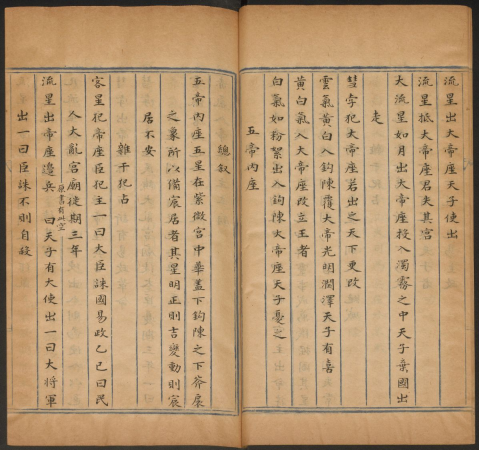 流星出大帝座天子使出
流星抵大帝座君失其宮
大流星如月出大帝座投入濁霧之中天子棄國出
走
彗孛犯大帝座若出之天下更政
雲氣黃白入鈎陳覆大帝光明潤澤天子有喜
黃白氣入大帝座改立王者
白氣如粉絮出入鈎陳大帝座天子憂之
五帝內座
總叙
五帝內座五星在紫微宮中華蓋下鈎陳之下斧扆
之象所以備宸居者其星明正則吉變動則宸
居不安
雜干犯占
客星犯帝座臣犯主一曰大臣誅國易政乙巳曰民
人大亂宮廟徙期三年
流星出帝座邊兵 原書此空 曰天子有大使出一曰大將軍
出一曰臣誅不則自殺